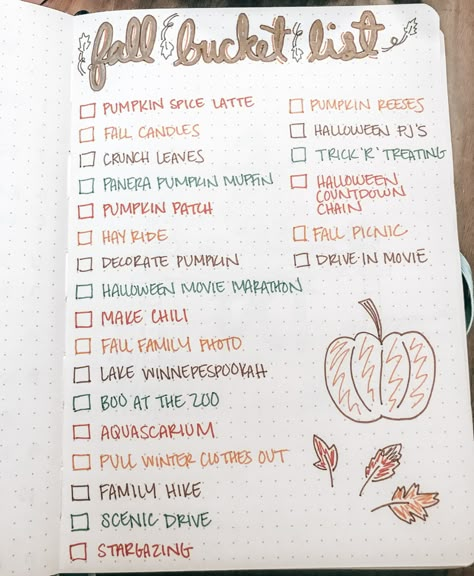 fall bucket list
PUMPKIN SPICE LATTE
FALL CANDLES
CRUNCH LEAVES
PANERA PUMPKIN MUFFIN
PUMPKIN PATCH
HAY RIDE
DECORATE PUMPKIN
HALLOWEEN MOVIE MARATHON
MAKE CHILI
FALL FAMILY PHOTO
LAKE WINNEPESPOOKAH
BOO AT THE ZOO
AQUASCARIUM
PULL WINTER CLOTHES OUT
FAMILY HIKE
SCENIC DRIVE
STARGAZING
PUMPKIN REESES
HALLOWEEN PJ'S
TRICK 'R' TREATING
HALLOWEEN
COUNTDOWN
CHAIN
FALL PICNIC
DRIVE-IN MOVIE